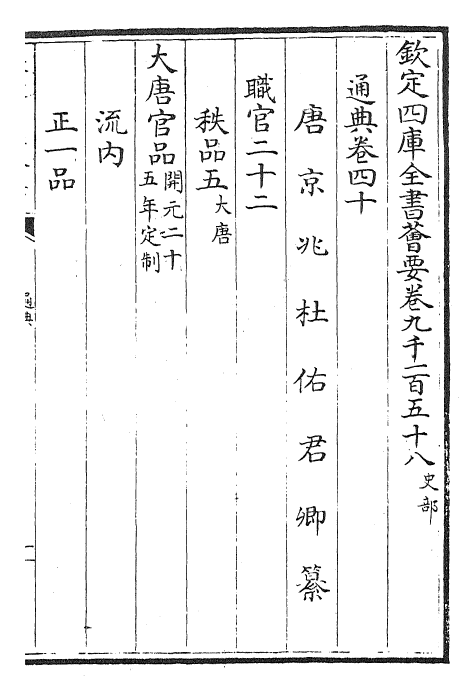 欽定四庫全書薈要卷九千一百五十八 史部
通典卷四十
唐京兆杜佑君卿纂
職官二十二
秩品五 大唐
大唐官品 開元二十五年定制
流内
正一品
通典
一